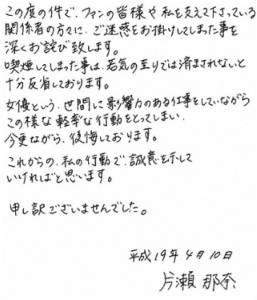 この度の件で、ファンの皆様や私を支えて下さっている
関係者の方々に、ご迷惑をお掛けしてしまった事を
深くお詫び致します。
喫煙してしまった事は、若気の至りでは済まされないと
十分反省しております。
女優という、世間に影響力のある仕事をしていながら
この様な軽率な行動をとってしまい、
今更ながら、後悔しております。
これからの、私の行動で、誠意を示して
いければと思います。
申し訳ございませんでした。
平成19年4月10日
片瀬 那奈